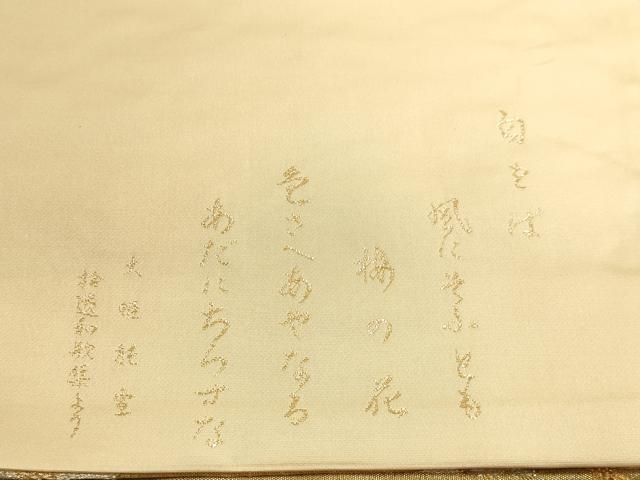 匂をば
風にそふとも
梅の花
色さへあやなる
あだにちらすな
大中臣能宣
拾遺和歌集より